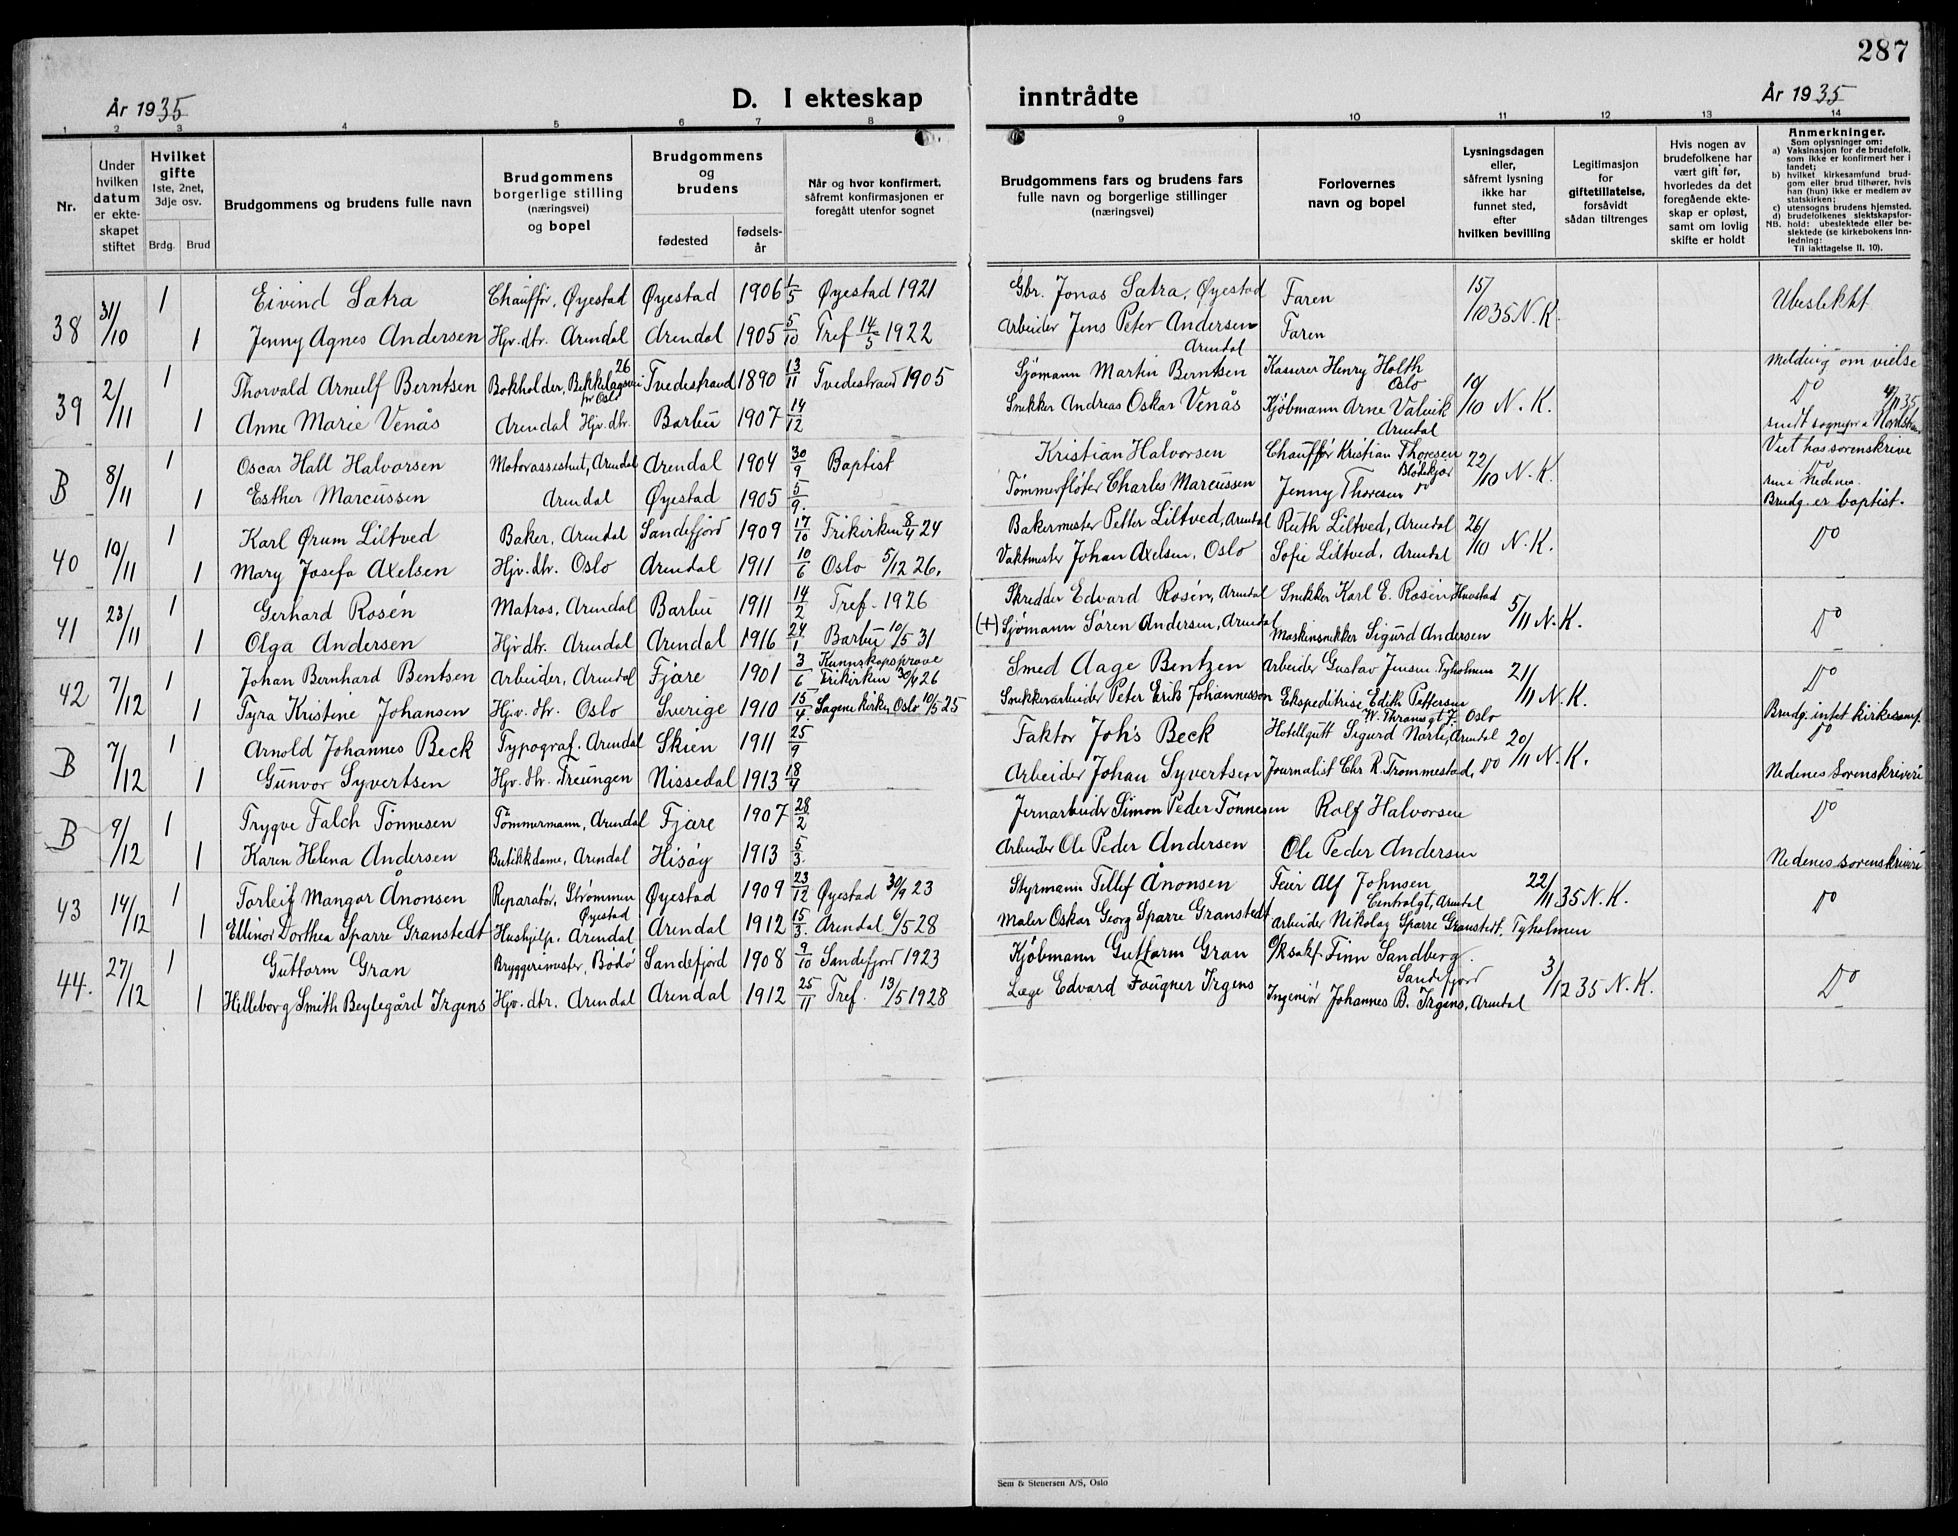 287
År 1935
D. I ekteskap inntrådte
År 1935
1 2 3 4 5 6 7 8 9 10 11 12 13 14
Nr.
Under hvilken datum er ekteskapet stiftet
Hvilket gifte
1ste, 2net, 3dje osv.
Brdg. Brud
Brudgommens og brudens fulle navn
Brudgommens borgerlige stilling (næringsvei) og bopel
Brudgommens og brudens
fødested
fødselsår
Når og hvor konfirmert, såfremt konfirmasjonen er foregått utenfor sognet
Brudgommens fars og brudens fars fulle navn og borgerlige stillinger (næringsvei)
Forlovernes navn og bopel
Lysningsdagen eller, såfremt lysning ikke har funnet sted, efter hvilken bevilling
Legitimasjon for giftetillatelse, forsåvidt sådan tiltrenges
Hvis nogen av brudefolkene har vært gift før, hvorledes da det foregående ekteskap er opløst, samt om lovlig skifte er holdt
Anmerkninger.
Som oplysninger om:
a) Vaksinasjon for de brudefolk, som ikke er konfirmert her i landet;
b) hvilket kirkesamfund brudgom eller brud tilhører, hvis han (hun) ikke er medlem av statskirken;
c) utensogns brudens hjemsted.
d) brudefolkenes slektskapsforhold: ubeslektede eller beslektede (se kirkebokens Innledning;
NB. Til iakttagelse II. 10).
38 31/10 1 Eivind Sætra Chauffør, Øyestad Øyestad 1906 1/5 Øyestad 1921 Gbr. Jonas Sætra, Øyestad Faren 15/10 35 N. K. Ubeslektet
1 Jenny Agnes Andersen Hjv. dtr. Arendal Arendal 1905 5/10 Tref 14/5 1922 Arbeider Jens Peter Andersen Arendal Faren
39 2/11 1 Thorvald Arnulf Berntsen Bokholder, 26 pr Oslo Tvedestrand 1890 13/11 Tvedestrand 1905 Sjømann Martin Berntsen Kasserer Henry Holth Oslo 19/10 N. K. Melding om vielse Do
1 Anne Marie Venås Arendal Hjv. dtr. Barbu 1907 14/12 Snekker Andreas Oskar Venås Kjøbmann Arne Valvik Arendal sendt
B 8/11 1 Oscar Hall Halvorsen Arendal Arendal 1904 30/9 Baptist Kristian Halvorsen Chauffør Kristian Thoresen 22/10 N. K. Viet hos sorenskrive Do
1 Esther Marcussen Arendal Øyestad 1905 5/9 Tømmerfløter Charles Marcussen Jenny Thoresen Do ren i Nedenes. Brudg. er baptist.
40 10/11 1 Karl Ørum Liltved Baker, Arendal Sandefjord 1909 17/10 Frikirken 8/4 24 Bakermester Petter Liltved, Arendal Ruth Liltved, Arendal 26/10 N. K. Do
1 Mary Josefa Axelsen Hjv. dtr. Oslo Arendal 1911 10/6 Oslo 5/12 26. Vaktmester Johan Axelsen, Oslo Sofie Liltved, Arendal
41 23/11 1 Gerhard Rosén Matros, Arendal Barbu 1911 14/2 Tref. 1926 Skredder Edvard Rosén, Arendal Snekker Karl E. Rosén, 5/11 N. K. Do
1 Olga Andersen Hjv dtr. Arendal Arendal 1916 24/1 Barbu 10/5 31 (+) Sjømann Sören Andersen, Arendal Maskinsnekker Sigurd Andersen
42 7/12 1 Johan Bernhard Bentsen Arbeider, Arendal Fjære 1901 3/6 Kunnskapsprøve Frikirken 30/4 26 Smed Aage Bentzen Arbeider Gustav Jensen, Tyholmen 21/11 N. K. Do
1 Tyra Kristine Johansen Hjv. dtr. Oslo Sverige 1910 15/4. Sagene kirke, Oslo 10/5 25 Snekkerarbeider Peter Erik Johannesson Ekspeditrise Edith Pettersen W. Thranes gt 7, Oslo Brudg. intet kirkesamf.
B 7/12 1 Arnold Johannes Beck Typograf. Arendal Skien 1911 25/9 Faktor Joh's Beck Hotellgutt Sigurd Arendal 20/11 N. K. Do
1 Gunvor Syvertsen Hjv. dtr. Treungen Nissedal 1913 18/4 Arbeider Johan Syvertsen Journalist Chr. R. Trommestad, Do Nedenes sorenskriveri
B 9/12 1 Trygve Falch Tönnesen Tömmermann, Arendal Fjære 1907 28/2 Jernarbeider Simon Peder Tönnesen Rolf Halvorsen Do
1 Karen Helena Andersen Butikkdame, Arendal Hisøy 1913 5/3. Arbeider Ole Peder Andersen Ole Peder Andersen Nedenes sorenskriveri
43 14/12 1 Torleif Mangor Ånonsen Reparatør, Strømmen Øyestad Øyestad 1909 23/12 Øyestad 30/9 23 Styrmann Tellef Ånonsen Feier Alf Johnsen Centralgt, Arendal 22/11 35 N. K. Do
1 Ellinor Dorthea Sparre Granstedt Hushjelp, Arendal Arendal 1912 15/3. Arendal 6/5 28 Maler Oskar Georg Sparre Granstedt Arbeider Nikolay Sparre Granstedt, Tyholmen
44. 27/12 1 Guttorm Gran Bryggerimester, Bodö Sandefjord 1908 9/10 Sandefjord 1923 Kjöbmann Guttorm Gran O/Rsakf. Finn Sandberg. Sandefjord 3/12 35 N. K. Do
1 Hilleborg Smith Beylegård Irgens Hjv. dtr. Arendal Arendal 1912 25/11 Tref. 13/5 1928 Læge Edvard Fougner Irgens Ingeniör Johannes B. Irgens, Arendal
Sem & Stenersen A/S, Oslo